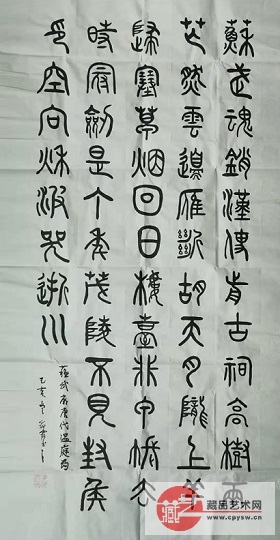 蘇武魂銷漢使前古祠高樹兩
茫然雲邊雁斷胡天月隴上羊
歸塞草煙回日樓臺非甲帳去
時冠劍是丁年茂陵不見封侯
印空向秋波哭逝川
蘇武庙唐代温庭筠
乙亥
藏品艺术网
www.cpysw.cn